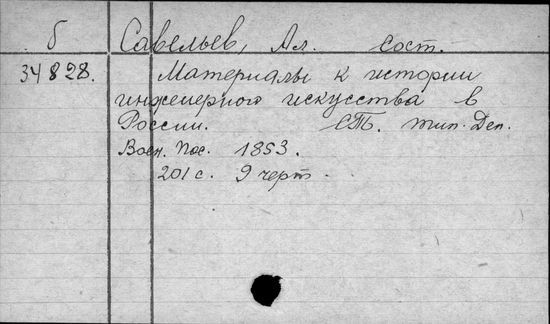 б Савельев, Ал. сост.
34828. Материалы к истории
инженерного искусства в
России. СПб. тип. Деп.
Воен. Пос. 1853.
201 с. 9 черт.